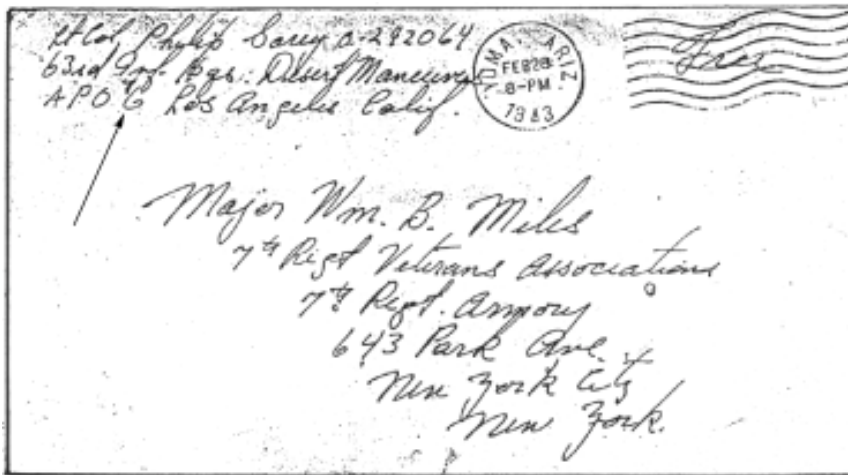 Lt Col Philip a-292064
63rd Inf. Hqs. Desert Maneuvers
APO 6 Los Angeles Calif.
YUMA, ARIZ.
FEB 28
8-PM
1943
Free
Major Wm. B. Miles
7th Regt Veterans Associations
7th Regt. Armory
643 Park Ave.
New York City
New York.